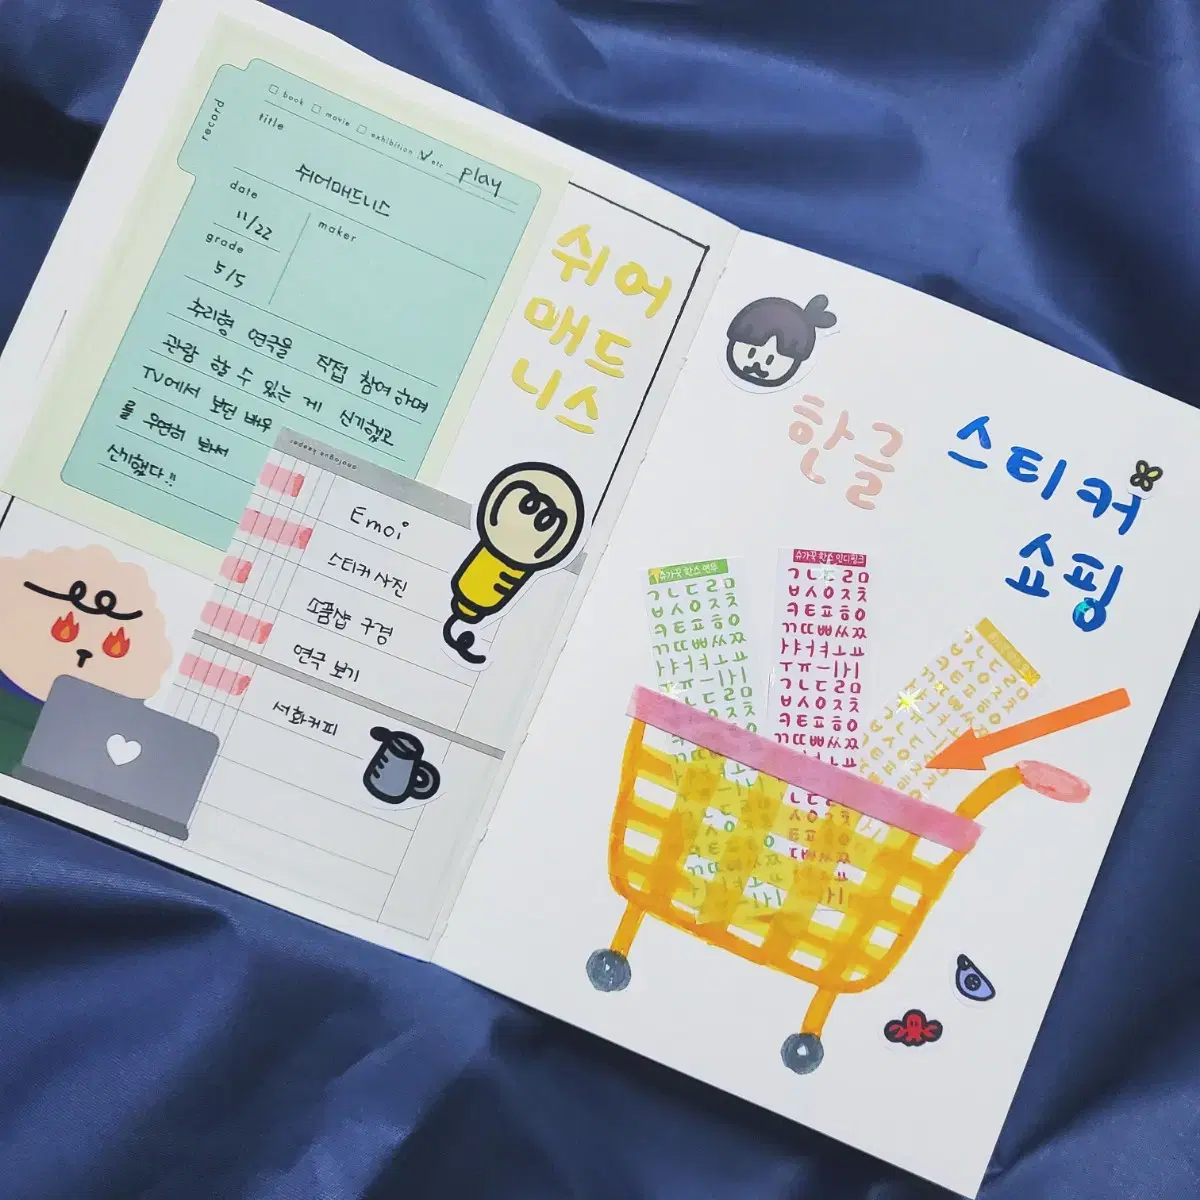 record
book movie exhibition etc play
title
쉬어매드니스
date
maker
11/22
grade
5/5
추리형 연극을 직접 참여하며
관람 할 수 있는 게 신기했고
TV에서 보던 배우
를 우연히 봐서
신기했다!!
쉬어
매드
니스
Emoi
스티커 사진
소품샵 구경
연극 보기
서화커피
한글
스티커
쇼핑
슈가꽃 학스 연두
ㄱㄴㄷㄹㅁ
ㅂㅅㅇㅈㅊ
ㅋㅌㅍㅎㅇ
ㄲㄸㅃㅆㅉ
ㅏㅑㅓㅕㅗㅛ
ㅜㅠㅡㅣㅏㅣ
ㄱㄴㄷㄹㅁ
ㅂㅅㅇㅈㅊ
슈가꽃 학스 인디핑크
ㄱㄴㄷㄹㅁ
ㅂㅅㅇㅈㅊ
ㅋㅌㅍㅎㅇ
ㄲㄸㅃㅆㅉ
ㅏㅑㅓㅕㅗㅛ
ㅜㅠㅡㅣㅏㅣ
ㄱㄴㄷㄹㅁ
ㅂㅅㅇㅈㅊ
ㅋㅌㅍㅎㅇ
ㄲㄸㅃㅆㅉ